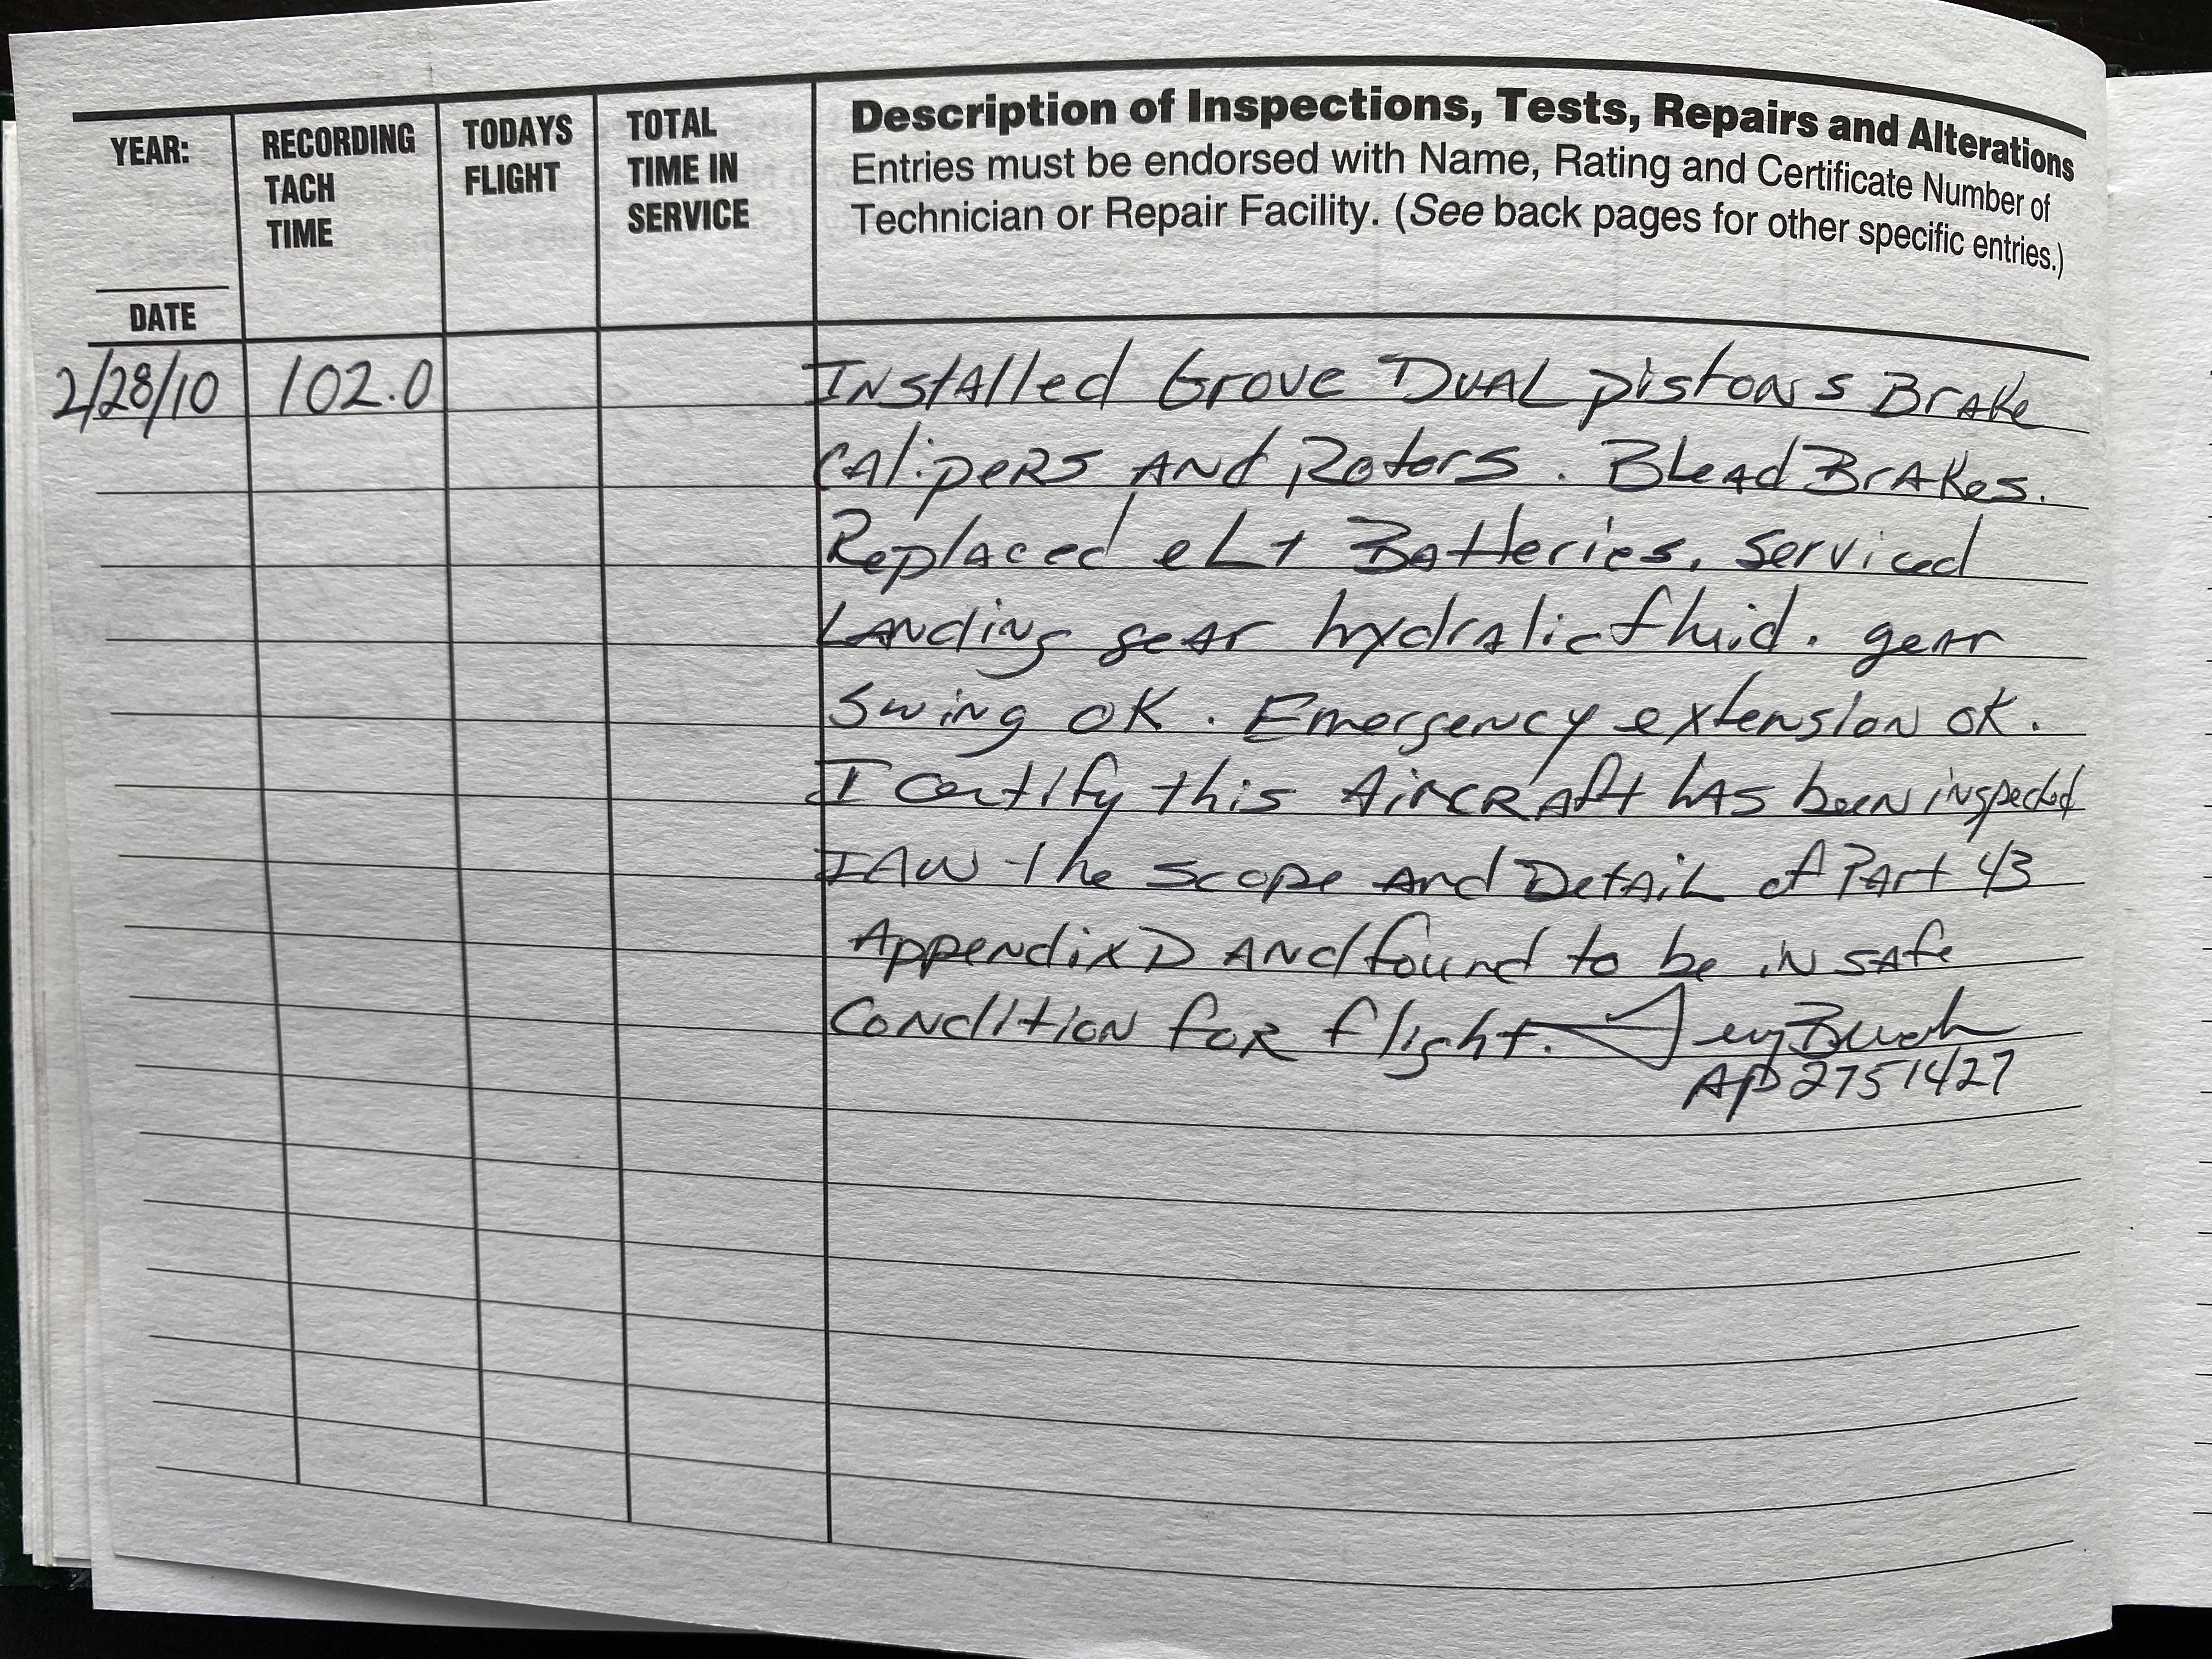 YEAR:
DATE
RECORDING
TACH
TIME
TODAYS
FLIGHT
TOTAL
TIME IN
SERVICE
Description of Inspections, Tests, Repairs and Alterations
Entries must be endorsed with Name, Rating and Certificate Number of
Technician or Repair Facility. (See back pages for other specific entries.)
2/28/10 102.0 Installed Grove Dual pistons Brake
Calipers and Rotors. Blead Brakes.
Replaced eLt Batteries. Serviced
Landing gear hydralic fluid. gear
Swing OK. Emergency extension ok.
I certify this Aircraft has been inspected
IAW the scope and Detail of Part 43
Appendix D and found to be in safe
Condition for flight.
AP 2751427